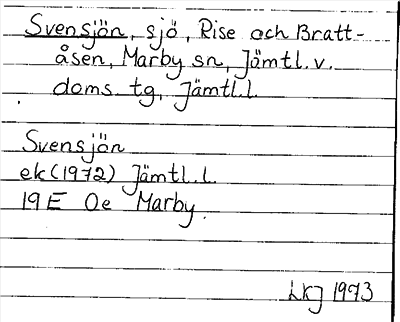 Svensjön, sjö, Rise och Bratt-
åsen, Marby sn, Jämtl. v.
doms. tg, Jämtl.l.
Svensjön
ek (1972) Jämtl. l.
19 E Oe Marby.
LKJ 1973